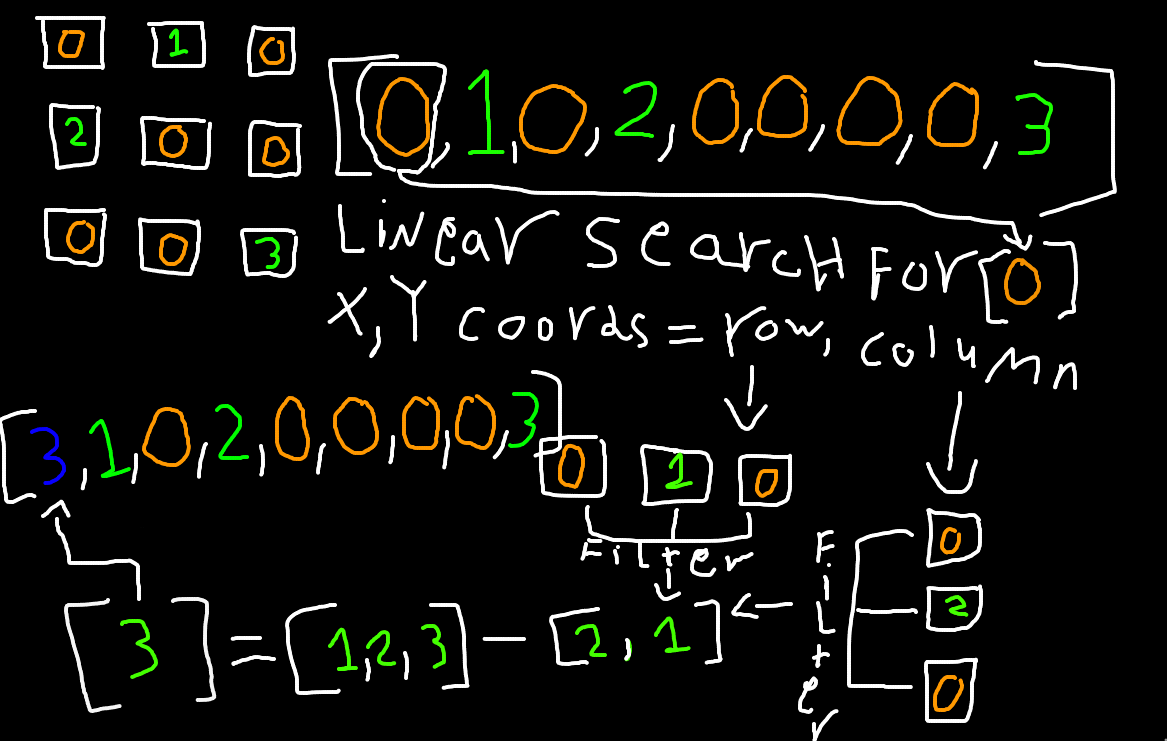 0 1 0
2 0 0
0 0 3
[0,1,0,2,0,0,0,0,3]
Linear search for [0]
X,Y coords = row, column
[3,1,0,2,0,0,0,0,3]
0 1 0
Filter
0
2
0
Filter
[3] = [1,2,3] - [2,1]